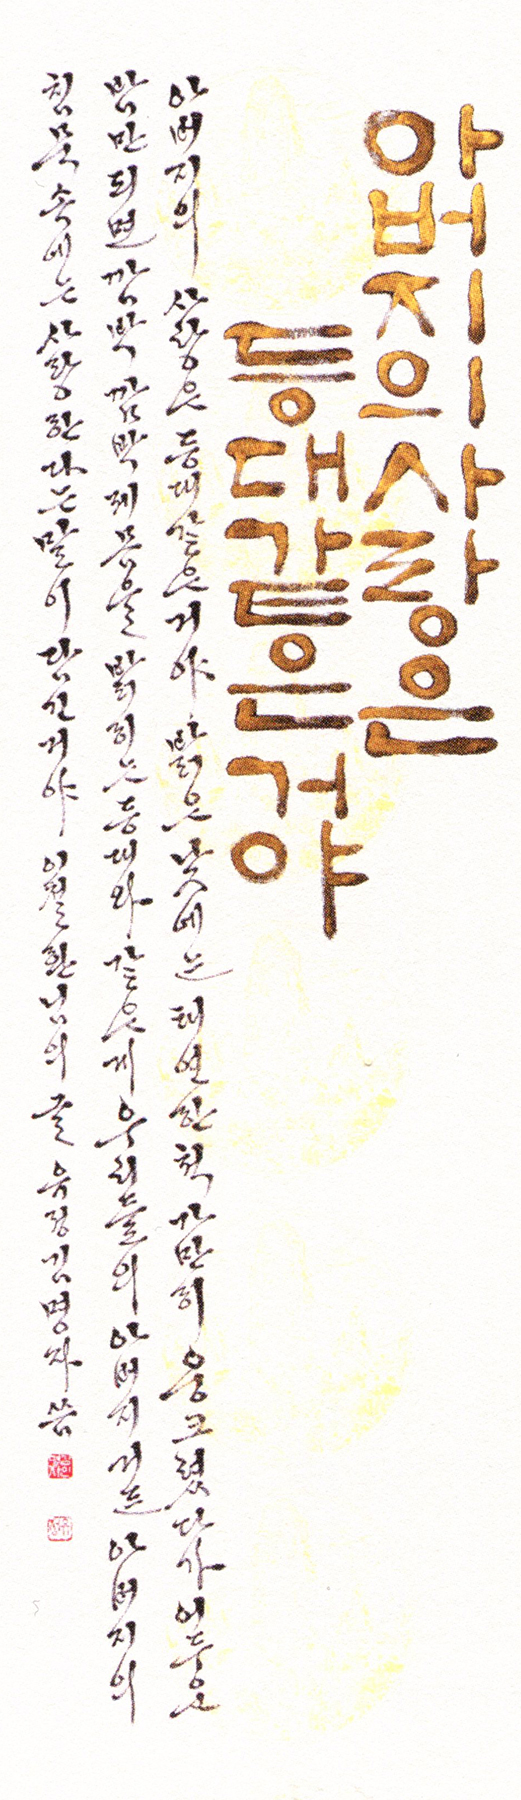 아버지의 사랑은
등대 같은 거야
아버지의 사랑은 등대 같은 거야 밝은 낮에는 태연한 척 가만히 웅크렸다가 어둠은
밤만 되면 깜박 깜박 제 몸을 밝히는 등대와 같은 게 우리들의 아버지 거든 아버지의
침묵 속에는 사랑한다는 말이 담긴 거야 이철환님의 글 유정 김명자 씀